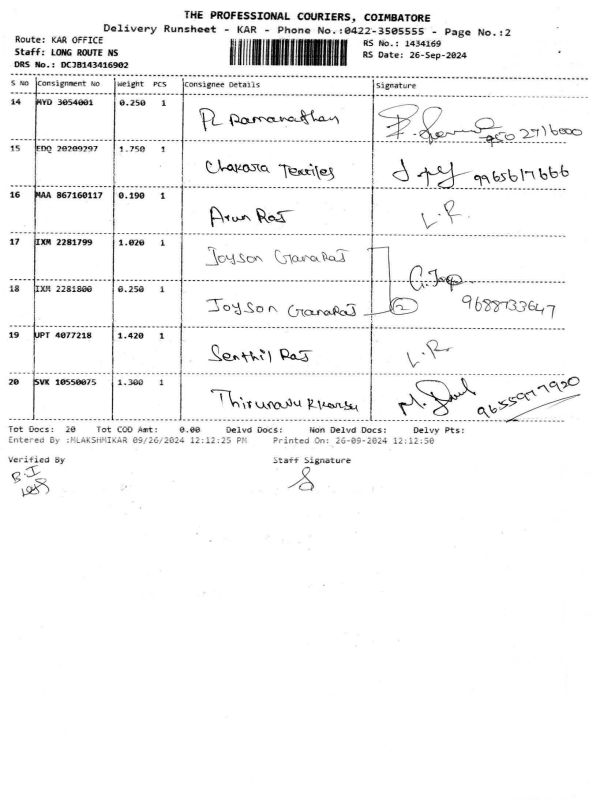 THE PROFESSIONAL COURIERS, COIMBATORE
Delivery Runsheet - KAR - Phone No.:0422-3505555 - Page No.:2
Route: KAR OFFICE RS No.: 1434169
Staff: LONG ROUTE NS RS Date: 26-Sep-2024
DRS No.: DCJB143416902
S No Consignment No Weight PCS Consignee Details Signature
14 MYD 3054001 0.250 1 PL Ramanathan
15 EDQ 20209297 1.750 1 Chakara Textiles 9965617666
16 MAA 867160117 0.190 1 Arun Raj L.R.
17 IXM 2281799 1.020 1 Joyson GanaRaj
18 IXM 2281800 0.250 1 Joyson GanaRaj 2 9688733647
19 UPT 4077218 1.420 1 Senthil Raj L.R.
20 SVK 10550075 1.300 1 Thirunavukkarsu 9655977920
Tot Docs: 20 Tot COD Amt: 0.00 Delvd Docs: Non Delvd Docs: Delvy Pts:
Entered By :MLAKSHMIKAR 09/26/2024 12:12:25 PM Printed On: 26-09-2024 12:12:50
Verified By Staff Signature